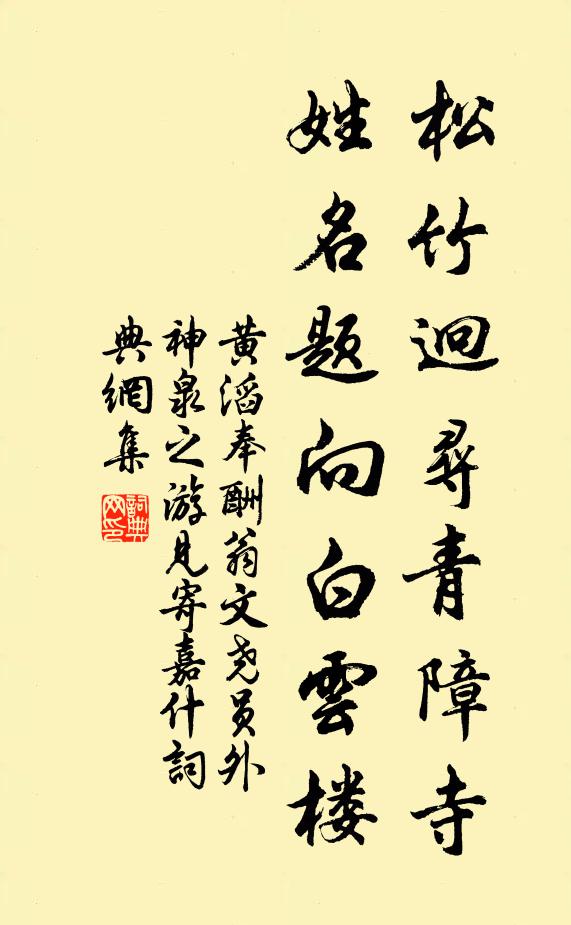 松竹迥尋青障寺
姓名题向白雲楼
黄滔奉酬翁文尧员外
神泉之游见寄嘉什詞
典網集
詞典
网印